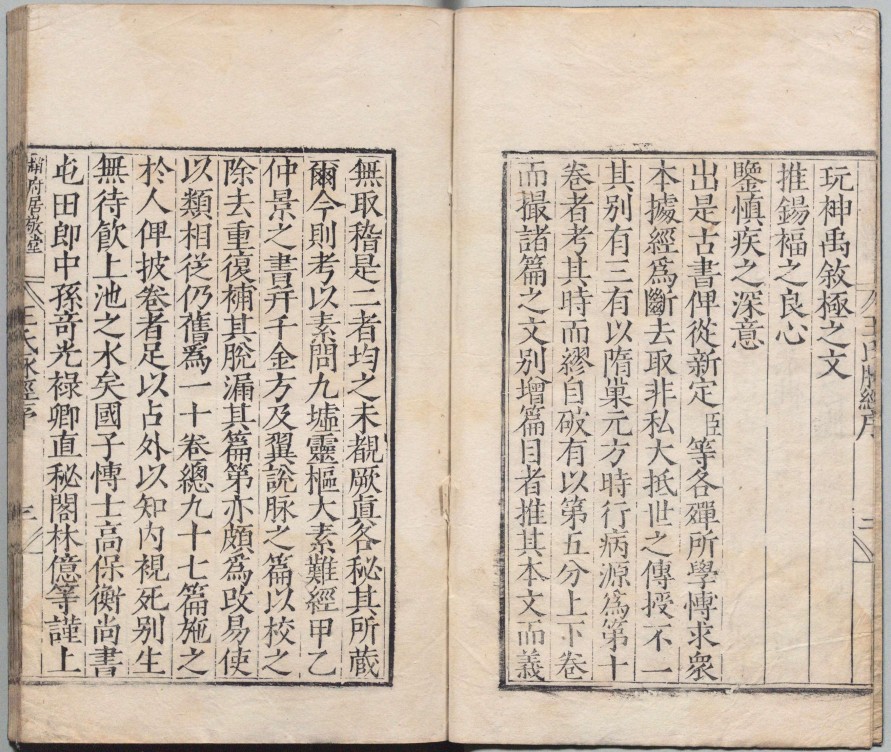 王氏脉經序 二
玩神禹敘極之文
推錫福之良心
鑒慎疾之深意
出是古書俾從新定臣等各殫所學愽求衆
本據經爲斷去取非私大抵世之傳授不一
其别有三有以隋巢元方時行病源爲第十
卷者考其時而繆自破有以第五分上下卷
而撮諸篇之文别增篇目者推其本文而義
無取稽是二者均之未覩厥眞各秘其所蔵
爾今則考以素問九墟靈樞大素難經甲乙
仲景之書并千金方及翼說脉之篇以校之
除去重復補其脫漏其篇第亦頗爲改易使
以類相從仍舊爲一十卷總九十七篇施之
於人俾披卷者足以占外以知内視死别生
無待飮上池之水矣國子愽士高保衡尚書
屯田郎中孫奇光祿卿直秘閣林億等謹上
居敬堂 王氏脉經序 三